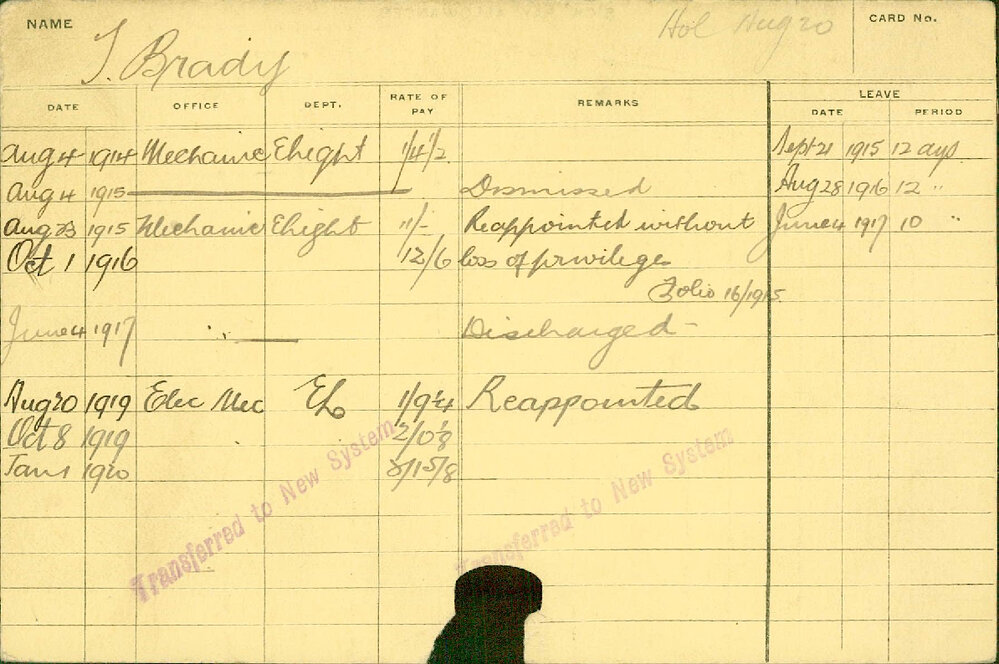 NAME T. Brady Hol Aug 20 CARD No.
DATE OFFICE DEPT. RATE OF PAY REMARKS LEAVE
DATE PERIOD
Aug 4 1914 Mechanic Elight 1/4½ Sept 21 1915 12 ays
Aug 4 1915 Dismissed Aug 28 1916 12 "
Aug 23 1915 Mechanic Elight 11/- Reappointed without June 4 1917 10 "
Oct 1 1916 12/6 loss of privilege
Folio 16/1915
June 4 1917 Discharged -
Aug 20 1919 Elec Mec EL 1/9¼ Reappointed
Oct 8 1919 2/0'8
Jan 1 1920 3/15/8
Transferred to New System
Transferred to New System